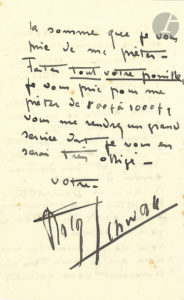 la somme que je vous
prie de me prêter.
Faites tout votre possible
je vous prie pour me
prêter de 800f à 1000f,
vous me rendrez un grand
service dont je vous en
serai très obligé.
votre.